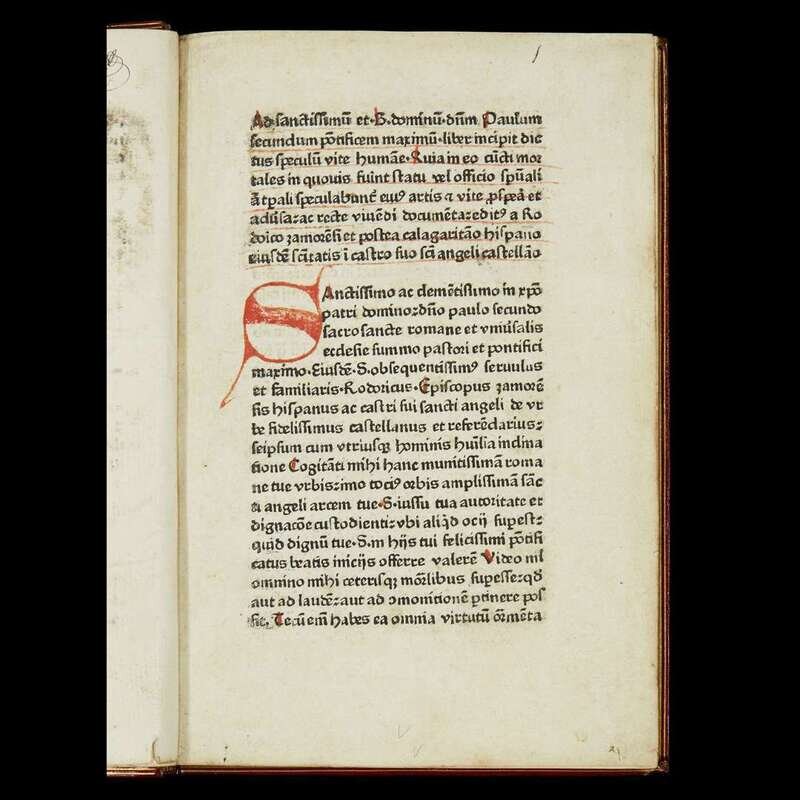 1
Ad sanctissimū et·B·dominū·dn̄m Paulum
secundum pōtificem maximū·liber incipit dic
tus speculū vite humāe·Quia in eo cūcti mor
tales in quouis fuīnt statu vel officio spūali
āt ꝑali speculabunt᷑ eiꝰ artis ⁊ vite ꝓspa᷑ et
aduſa:ac recte viuēdi documēta:editꝰ a Ro
dorico zamorēſi et postea calagaritāo hispano
eiusdē sc̄itatis ī castro suo sc̄i angeli castellāo
SAnctissimo ac clemētissimo in xp̄o
patri domino:dn̄o paulo secundo
sacrosancte romane et vniūsalis
ecclesie summo pastori et pontifici
maximo·Eiusdē·S·obsequentissimꝰ seruulus
et familiaris·Rodoricus·Episcopus zamorē
sis hispanus ac castri sui sancti angeli de vr
be fidelissimus castellanus et referēdarius:
seipsum cum vtriusqꝫ hominis hūilia inclina
tione Cogitāti mihi hanc munitissimā roma
ne tue vrbis:imo tociꝰ orbis amplissimā sāc
ti angeli arcem tue·S·iussu tua autoritate et
dignacōe custodienti:vbi aliq̄d ocij suꝑest:
quid dignū tue·S·in hijs tui felicissimi pōtifi
catus beatis inicijs offerre valerē Video nil
omnino mihi ceterisqꝫ mōrlibus suꝑesse:qd̄
aut ad laudē:aut ad ↄmonitionē ꝑtinere pos
sit, Tecū em̄ habes ea omnia virtutū ōrmēta